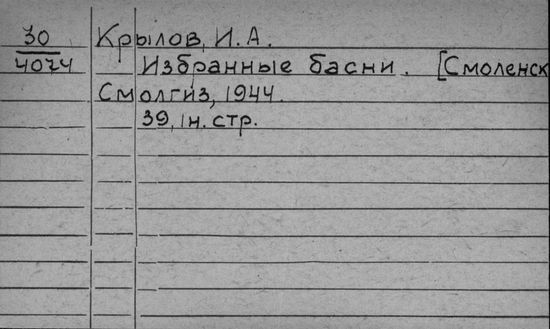 30 Крылов, И.А.
4074 Избранные басни. [Смоленск
Смолгиз, 1944.
39, 1н. стр.